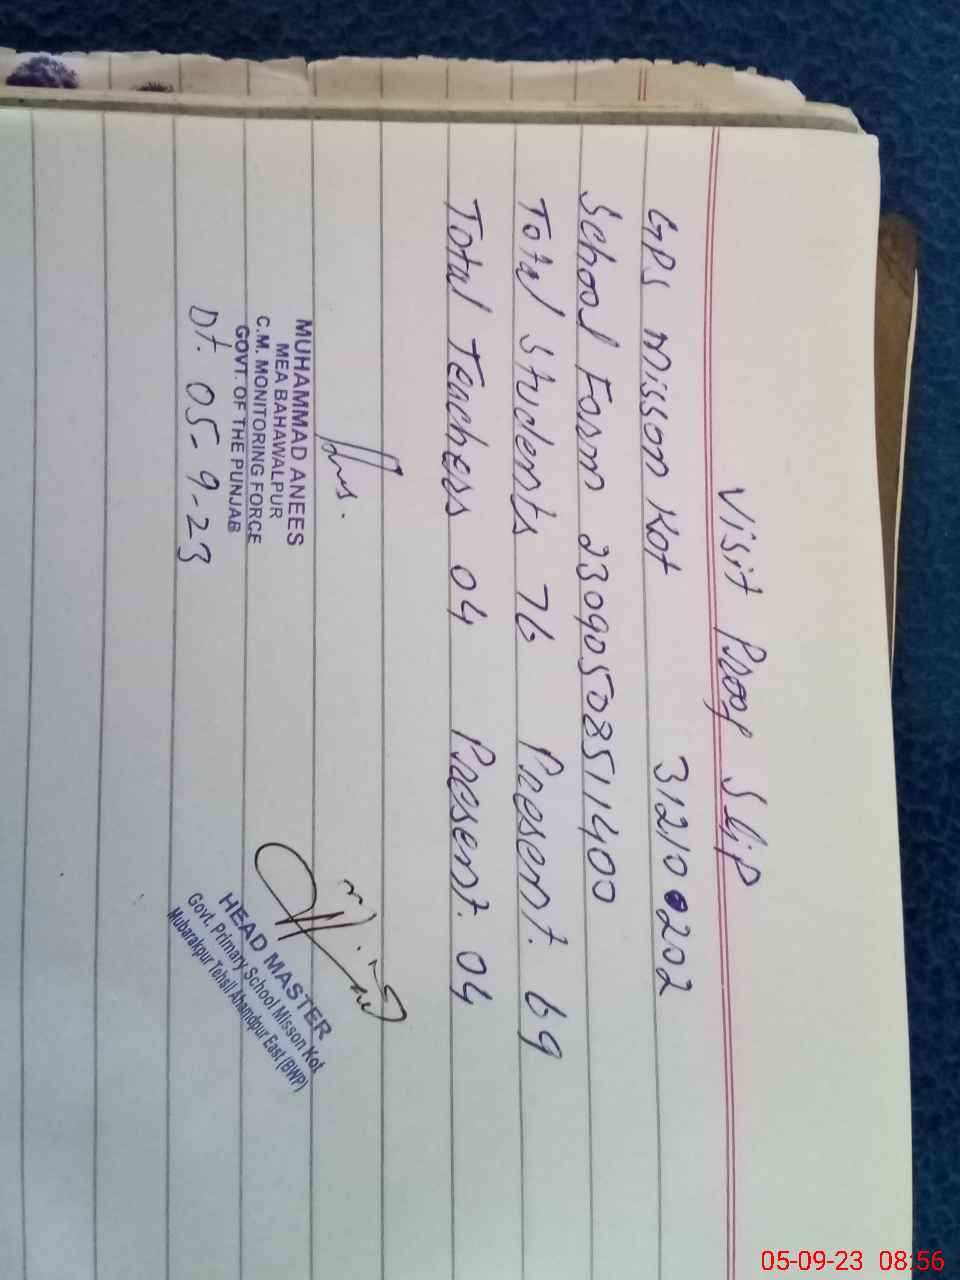 Visit Proof Slip
GPS Misson Kot 31210202
School Form 2309050851400
Total Students 76 Present. 69
Total Teachers 04 Present. 04
MUHAMMAD ANEES
MEA BAHAWALPUR
C.M. MONITORING FORCE
GOVT. OF THE PUNJAB
Dt. 05-9-23
HEAD MASTER
Govt. Primary School Misson Kot
Mubarakpur Tehsil Ahamdpur East (BWP)
05-09-23 08:56